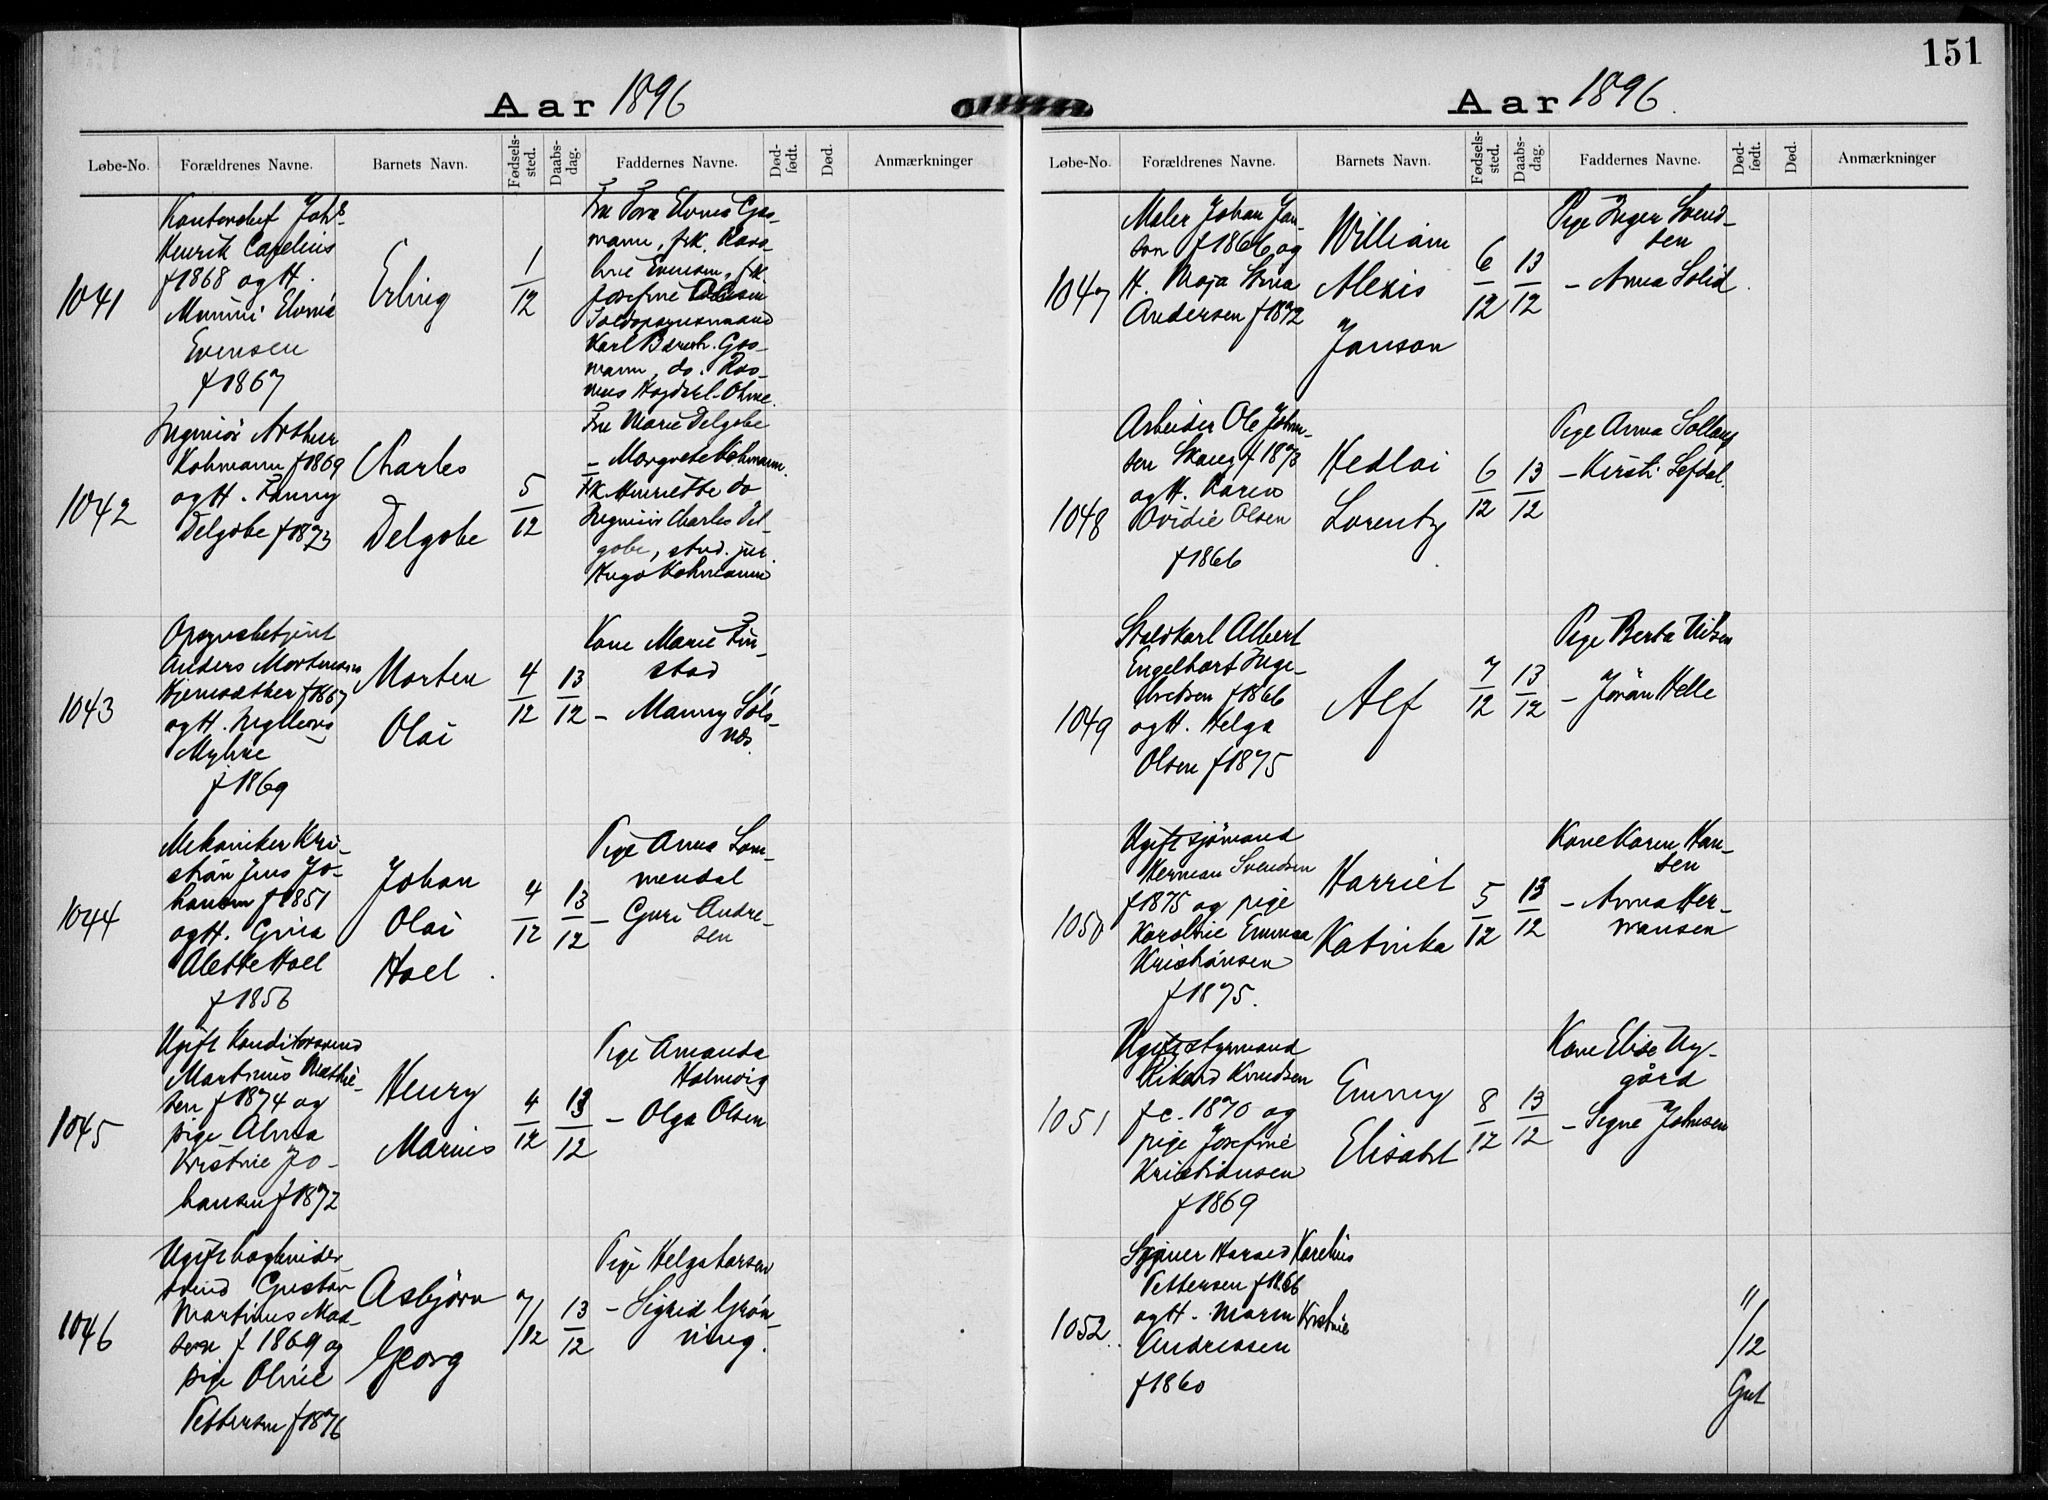 151
Aar 1896
Løbe-No. Forældrenes Navne. Barnets Navn. Fødsels-sted. Daabs-dag. Faddernes Navne. Død-født. Død. Anmærkninger
1041
Kontorchef Johs
Henrik Capelius
f 1868 og H.
Mimmi Elvina
Evensen
f 1867
Erling
1/12
Fru Thora Elvina Gas-
mann, frk. Rosa
line Evensen, frk.
Josefine
Toldopsynsmand
Karl Bernh. Gas-
mann, do. Ras-
mus Høgdahl-Ohme.
1042
Ingeniør Arthur
Kohmann f 1869
og H. Fanny
Delgobe f 1873
Charles
Delgobe
5/12
Fru Marie Delgobe
– Margrete Kohmann.
Frk Henriette do
Ingeniør Charles Del-
gobe, stud. jur.
Hugo Kohmann
1043
Opsynsbetjent
Anders Mortensen
Bjernsæther f 1867
og H. Ingeborg
Myhre
f 1869
Morten
Olai
4/12
13/12
Kone Marie Fin-
stad
– Manny Søls-
næs
1044
Mekaniker Kri-
stian Jens Jo-
hansen f 1851
og H. Gina
Alette Hoel
f 1856
Johan
Olai
Hoel.
4/12
13/12
Pige Anna Lom-
mendal
– Guri Andre-
sen
1045
Ugift Konditorsvend
Martinius Mathie-
sen f 1874 og
pige Alma
Kristine Jo-
hansen f 1872
Henry
Marius
4/12
13/12
Pige Amanda
Holmvig
– Olga Olsen
1046
Ugift bogbinder
svend Gustav
Martinius Mad-
sen f 1869 og
pige Oline
Pettersen f 1876
Asbjørn
Georg
7/12
13/12
Pige Helga Larsen
– Sigrid Grøn-
ning.
Aar 1896.
Løbe-No. Forældrenes Navne. Barnets Navn. Fødsels-sted. Daabs-dag. Faddernes Navne. Død-født. Død. Anmærkninger
1047
Maler Johan Jan-
son f 1866 og
H. Maja Stina
Andersen f 1872
William
Alexis
Janson
6/12
13/12
Pige Inger Svend-
sen
– Anna Solid.
1048
Arbeider Ole Johan-
sen Skaug f 1873
og H. Karen
Ovidie Olsen
f 1866
Hedlai
Lorentz
6/12
13/12
Pige Anna Solberg
– Kirsti Lefdal.
1049
Staldkarl Albert
Engelhart Inge-
bretsen f 1866
og H. Helga
Olsen f 1875
Alf
7/12
13/12
Pige Berta Nilsen
– Jöran Helle
1050
Ugift sjømand
Herman Svendsen
f 1875 og pige
Karoline Emma
Kristiansen
f 1875.
Harriet
Katinka
5/12
13/12
Kone Karen Han-
sen
– Anna Her-
mansen
1051
Ugift styrmand
Rikard Knudsen
f c. 1870 og
pige Josefine
Kristiansen
f 1869
Emmy
Elisabet
8/12
13/12
Kone Elise Ny-
gård
– Signe Johnsen
1052.
Gjører Harald Karelius
Pettersen f 1866
og H. Maren Kristine
Andreasen
f 1860
"/12
Gut